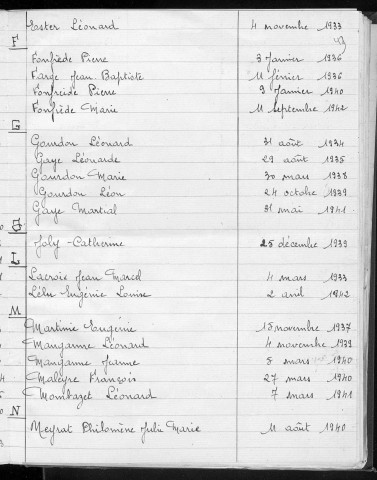 Ester Léonard 4 novembre 1933
F
Fonfiède Pierre 3 Janvier 1936
Farge Jean-Baptiste 11 février 1936
Fonfreide Pierre 9 Janvier 1940
Fonfiède Marie 11 septembre 1942
G
Gourdon Léonard 31 août 1934
Gaye Léonarde 29 août 1935
Gourdon Marie 30 mars 1938
Gourdon Léon 24 octobre 1939
Gaye Martial 31 mai 1941
J
Joly-Catherine 25 décembre 1939
L
Lacroix Jean Marcel 4 mars 1933
Lélu Eugénie Louise 2 avril 1942
M
Martinie Eugénie 15 novembre 1937
Manganne Léonard 4 novembre 1939
Manganne Jeanne 5 mars 1940
Maleyre François 27 mars 1940
Mombazet Léonard 7 mars 1941
N
Meyrat Philomène Julie Marie 11 août 1940